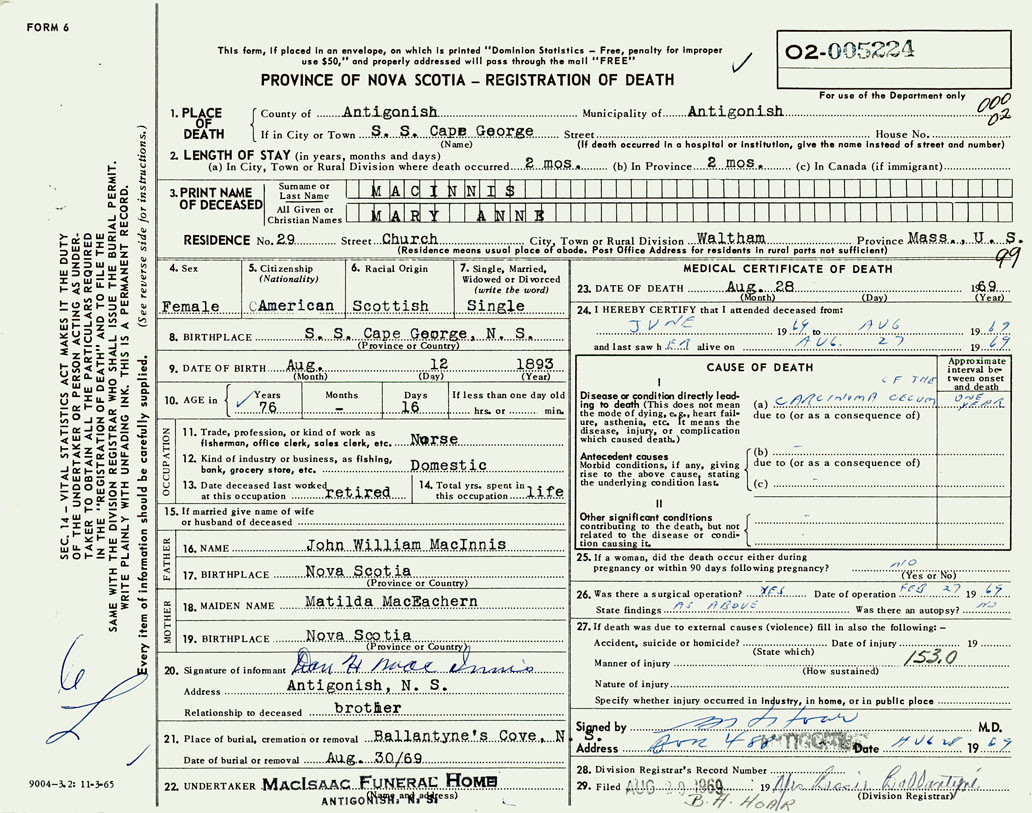 FORM 6
This form, if placed in an envelope, on which is printed "Dominion Statistics – Free, penalty for improper
use $50," and properly addressed will pass through the mail "FREE"
PROVINCE OF NOVA SCOTIA – REGISTRATION OF DEATH
O2-005224
For use of the Department only
000
02
1. PLACE OF DEATH
County of Antigonish Municipality of Antigonish
If in City or Town S. S. Cape George Street House No.
(Name) (If death occurred in a hospital or institution, give the name instead of street and number)
2. LENGTH OF STAY (in years, months and days)
(a) In City, Town or Rural Division where death occurred 2 mos. (b) In Province 2 mos. (c) In Canada (if immigrant)
3. PRINT NAME OF DECEASED
Surname or Last Name MACINNIS
All Given or Christian Names MARY ANNE
RESIDENCE No. 29 Street Church City, Town or Rural Division Waltham Province Mass., U. S.
(Residence means usual place of abode. Post Office Address for residents in rural parts not sufficient)
99
4. Sex
Female
5. Citizenship (Nationality)
American
6. Racial Origin
Scottish
7. Single, Married, Widowed or Divorced (write the word)
Single
8. BIRTHPLACE S. S. Cape George, N. S.
(Province or Country)
9. DATE OF BIRTH Aug. 12 1893
(Month) (Day) (Year)
10. AGE in Years Months Days If less than one day old
76 – 16 hrs. or min.
OCCUPATION
11. Trade, profession, or kind of work as
fisherman, office clerk, sales clerk, etc. Nurse
12. Kind of industry or business, as fishing,
bank, grocery store, etc. Domestic
13. Date deceased last worked
at this occupation retired
14. Total yrs. spent in
this occupation life
15. If married give name of wife
or husband of deceased
FATHER
16. NAME John William MacInnis
17. BIRTHPLACE Nova Scotia
(Province or Country)
MOTHER
18. MAIDEN NAME Matilda MacEachern
19. BIRTHPLACE Nova Scotia
(Province or Country)
20. Signature of informant Dan H MacInnis
Address Antigonish, N. S.
Relationship to deceased brother
21. Place of burial, cremation or removal Ballantyne's Cove, N. S.
Date of burial or removal Aug. 30/69
22. UNDERTAKER MacIsaac Funeral Home
(Name and address)
ANTIGONISH, N. S.
MEDICAL CERTIFICATE OF DEATH
23. DATE OF DEATH Aug. 28 1969
(Month) (Day) (Year)
24. I HEREBY CERTIFY that I attended deceased from:
JUNE 1969 to AUG 1969
and last saw h ER alive on AUG. 27 1969
CAUSE OF DEATH
Approximate interval between onset and death
I
Disease or condition directly leading
to death (This does not mean
the mode of dying, e.g., heart failure,
asthenia, etc. It means the
disease, injury, or complication
which caused death.)
OF THE
(a) CARCINOMA CECUM
ONE YEAR
due to (or as a consequence of)
Antecedent causes
Morbid conditions, if any, giving
rise to the above cause, stating
the underlying condition last.
(b)
due to (or as a consequence of)
(c)
II
Other significant conditions
contributing to the death, but not
related to the disease or condition
causing it.
25. If a woman, did the death occur either during
pregnancy or within 90 days following pregnancy? NO
(Yes or No)
26. Was there a surgical operation? YES Date of operation FEB 27 1969
State findings AS ABOVE Was there an autopsy? NO
27. If death was due to external causes (violence) fill in also the following: –
Accident, suicide or homicide? Date of injury 19
(State which)
Manner of injury 153.0
(How sustained)
Nature of injury
Specify whether injury occurred in industry, in home, or in public place
Signed by M.D.
Address Box 488 ANTIGONISH Date AUG 28 1969
28. Division Registrar's Record Number
29. Filed AUG 30 1969 19 Mrs Ballantyne
(Division Registrar)
B. A. HOAR
SEC. 14 – VITAL STATISTICS ACT MAKES IT THE DUTY
OF THE UNDERTAKER OR PERSON ACTING AS UNDERTAKER
TO OBTAIN ALL THE PARTICULARS REQUIRED
IN THE "REGISTRATION OF DEATH" AND TO FILE THE
SAME WITH THE DIVISION REGISTRAR WHO SHALL ISSUE THE BURIAL PERMIT.
WRITE PLAINLY WITH UNFADING INK. THIS IS A PERMANENT RECORD.
Every item of information should be carefully supplied. (See reverse side for instructions.)
9004-3.2: 11-3-65